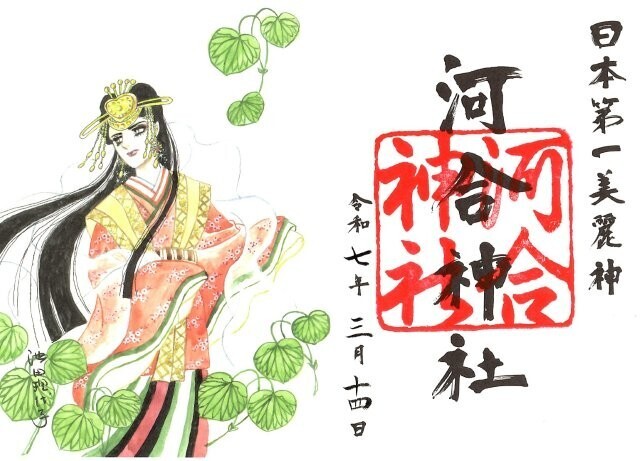 日本第一美麗神
河合神社
河合
神社
令和七年 三月十四日
池田理代子